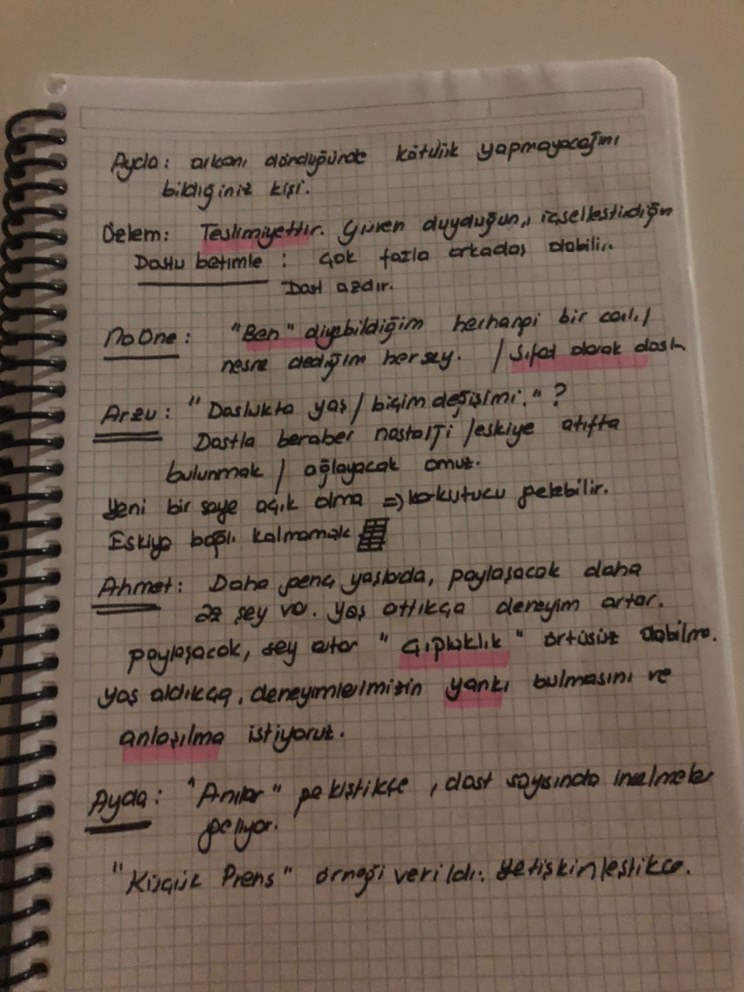 Ayda: arkanı döndüğünde kötülük yapmayacağını
bildiğiniz kişi.
Özlem: Teslimiyettir. Güven duyduğun, içselleştirdiğin
Dostu betimle : Çok fazla arkadaş olabilir.
Dost azdır.
No One : "Ben" diyebildiğim herhangi bir canlı /
nesne dediğim her şey. / Sıfat olarak dost
Arzu : "Dostlukta yaş / biçim değişimi." ?
Dostla beraber nostalji / eskiye atıfta
bulunmak / ağlayacak omuz.
Yeni bir şeye açık olma => korkutucu gelebilir.
Eskiye bağlı kalmamak
Ahmet : Daha genç yaşlarda, paylaşacak daha
az şey var. Yaş attıkça deneyim artar.
paylaşacak, şey artar "Çıplaklık" örtüsüz olabilme.
yaş aldıkça, deneyimlerimizin yankı bulmasını ve
anlaşılma istiyoruz.
Ayda : "Anılar" pekiştikçe, dost sayısında incelmeler
geliyor.
"Küçük Prens" örneği verildi: Yetişkinleştikçe.